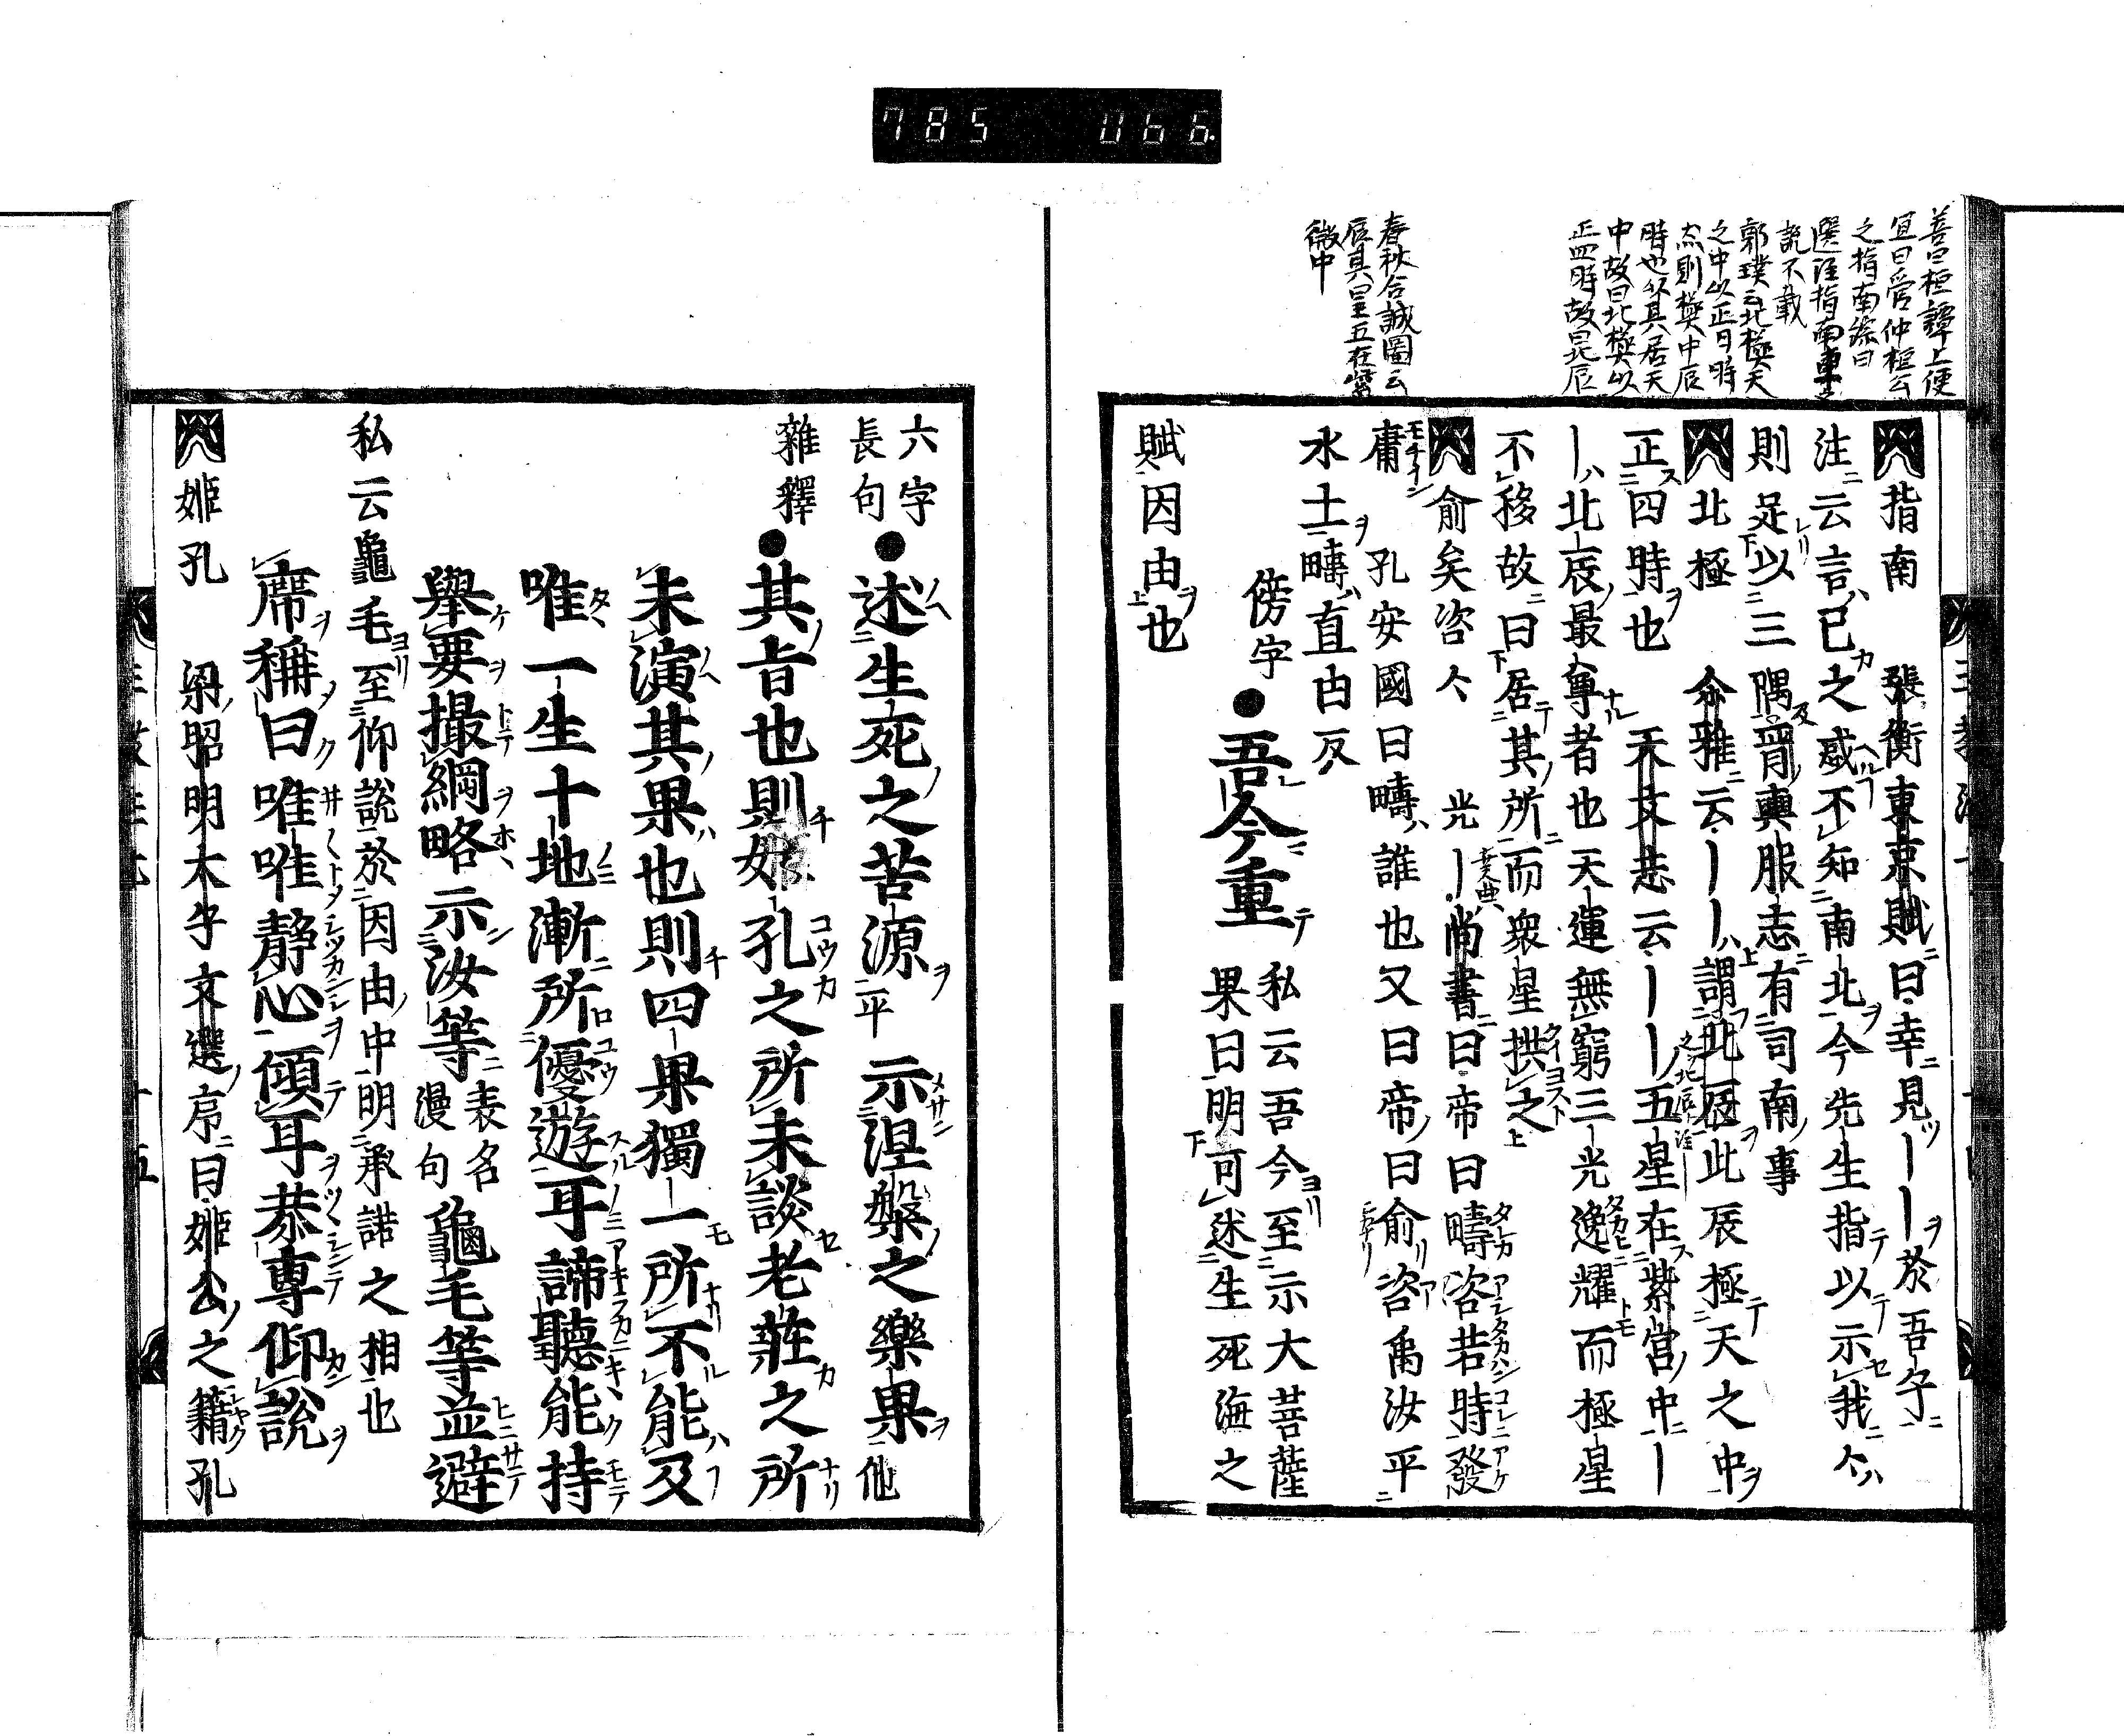 785 066
善曰桓譚上便
宜曰管仲桓公
之指南綜曰
選注指南車
說不載
郭璞云北極天
之中以正四時
然則極中辰
時也以其居天
中故曰北極以
正四時故曰北辰
春秋合誠圖云
辰其星五在紫
微中
指南 張衡東京賦曰幸見――於吾子
注云言己之惑不知南北今先生指以示我今
則足以三隅及胷輿服志有司南事
北極 尒雅云――謂北辰此辰極天之中
正四時也 天文志云――五星在紫宮中―
―北辰最尊者也天運無窮三光逸耀而極星
不移故曰居其所而衆星拱之
俞矣咨 光―尚書曰帝曰疇咨若時發
庸 孔安國曰疇誰也又曰帝曰俞咨禹汝平
水土疇直由反
傍字●吾今重 私云吾今至示大菩薩
果曰明可述生死海之
賦因由也
六字
長句●述生死之苦源平示涅槃之樂果他
雜釋●其旨也則姬孔之所未談老莊之所
未演其果也則四果獨一所不能及
唯一生十地漸所優遊耳諦聽能持
舉要撮綱略示汝等表名
漫句龜毛等並避
私云龜毛至仰說於因由中明承諾之相也
席稱曰唯唯靜心傾耳恭專仰說
姬孔 梁昭明太子文選序曰姬公之籍孔